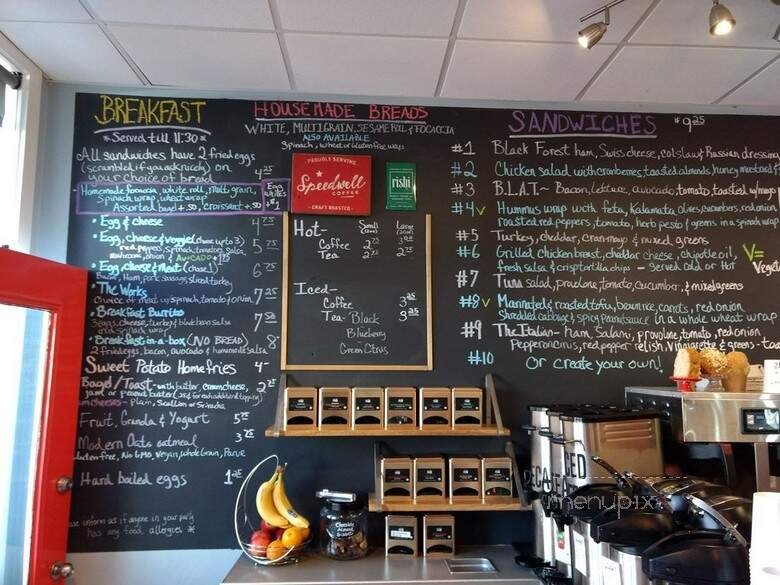 BREAKFAST
* Served till 11:30 *
All sandwiches have 2 fried eggs
(scrambled if you ask nicely) on
your choice of bread 4 25
Homemade focaccia, white roll, multi grain,
Spinach wrap, wheat wrap
Assorted bagel +.50, croissant +.50
Egg whites + $1
• Egg & cheese 4 75
• Egg, cheese & veggie (choose up to 3) 5 75
red pepper, spinach, tomatoes, salsa,
mushroom, onion & AVCADO + 1 25
• Egg, cheese & Meat (choose 1) 6 75
Bacon, Ham, pork sausage, sliced turkey
• The Works 7 25
Choice of meat w/ spinach, tomato & onion
• Breakfast Burrito 7 50
3 eggs, cheese, turkey & black bean salsa
and spinach wrap
• Breakfast-in-a-box (NO BREAD) 8
2 fried eggs, bacon, avocado & homemade salsa
Sweet Potato Homefries 4-
Bagel/Toast - with butter, cream cheese, 2 25
jam or peanut butter
cheeses - Plain, Scallion or Sriracha
Fruit, Granola & Yogurt 5 75
Modern Oats oatmeal 3 75
Gluten free, No GMO, vegan, whole Grain
Hard boiled eggs 1 25
inform us if anyone in your party
has any food allergies *
HOUSEMADE BREADS
WHITE, MULTIGRAIN, SESAME ROLL & FOCACCIA
ALSO AVAILABLE
Spinach, wheat or Gluten free wraps
PROUDLY SERVING
Speedwell
COFFEE
- CRAFT ROASTED -
rishi
Hot - Small Large
Coffee 2 25
Tea 2 25
Iced -
Coffee 3 25
Tea - Black 3 25
Blueberry
Green Citrus
SANDWICHES $9 25
#1 Black Forest ham, Swiss cheese, coleslaw & Russian dressing
#2 Chicken salad with cranberries, toasted almonds, honey mustard
#3 B.L.A.T ~ Bacon, lettuce, avocado, tomato, toasted w/ mayo
#4 √ Hummus wrap with feta, Kalamata olives, cucumbers, red onion
roasted red peppers, tomato, herb pesto & greens in a spinach wrap
#5 Turkey, cheddar, cran-mayo & mixed greens
#6 Grilled chicken breast, cheddar cheese, chipotle oil,
fresh salsa & crisp tortilla chips - served cold or Hot
√=
Vegeta
#7 Tuna salad, provolone, tomato, cucumber, & mixed greens
#8 √ Marinated & roasted tofu, brown rice, carrots, red onion
Shredded cabbage & spicy peanut sauce in a whole wheat wrap
#9 The Italian - ham, Salami, provolone, tomato, red onion
Pepperoncinis, red pepper relish, Vinaigrette & greens - toa
#10 Or create your own!
DECAF
ICED
Chocolate
Almonds
menupix